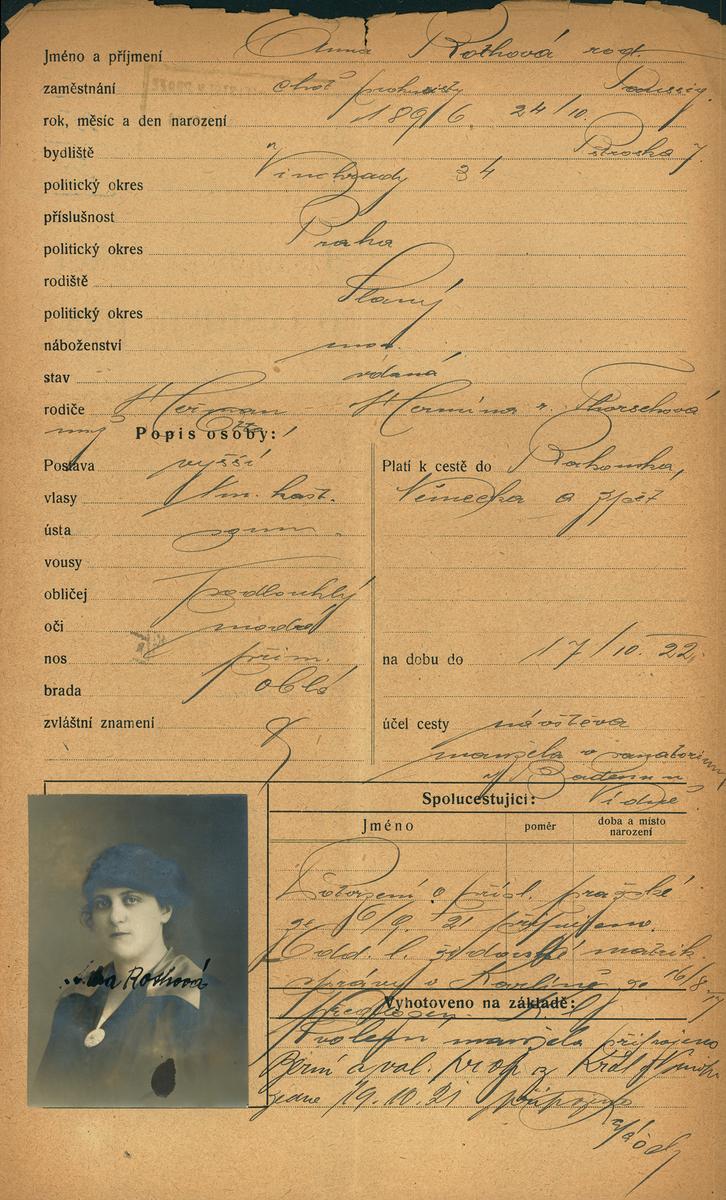 Jméno a příjmení Anna Rothová roz.
zaměstnání choť prokuristy
rok, měsíc a den narození 1896 24/10.
bydliště Vinohrady 34
politický okres
příslušnost Praha
politický okres
rodiště Slaný
politický okres
náboženství
stav vdaná
rodiče Heřman Hermina r.
Popis osoby:
Postava vyšší
vlasy tm. kašt.
ústa soum.
vousy
obličej podlouhlý
oči modré
nos přim.
brada oblá
zvláštní znamení
Platí k cestě do Rakouska,
Německa a zpět
na dobu do 17/10. 22.
účel cesty návštěva
manžela v sanatoriu
v Badenu u
Vídně
Spolucestující:
Jméno poměr doba a místo
narození
Potvrzení o přísl. pražské
ze 16/9. 21 připojeno.
Odd. l. židovské matrik.
správy v Karlíně ze 16/8.
Vyhotoveno na základě:
Svolení manžela připojeno
Berní a pol.
19.10.21 připojeno
Rothová